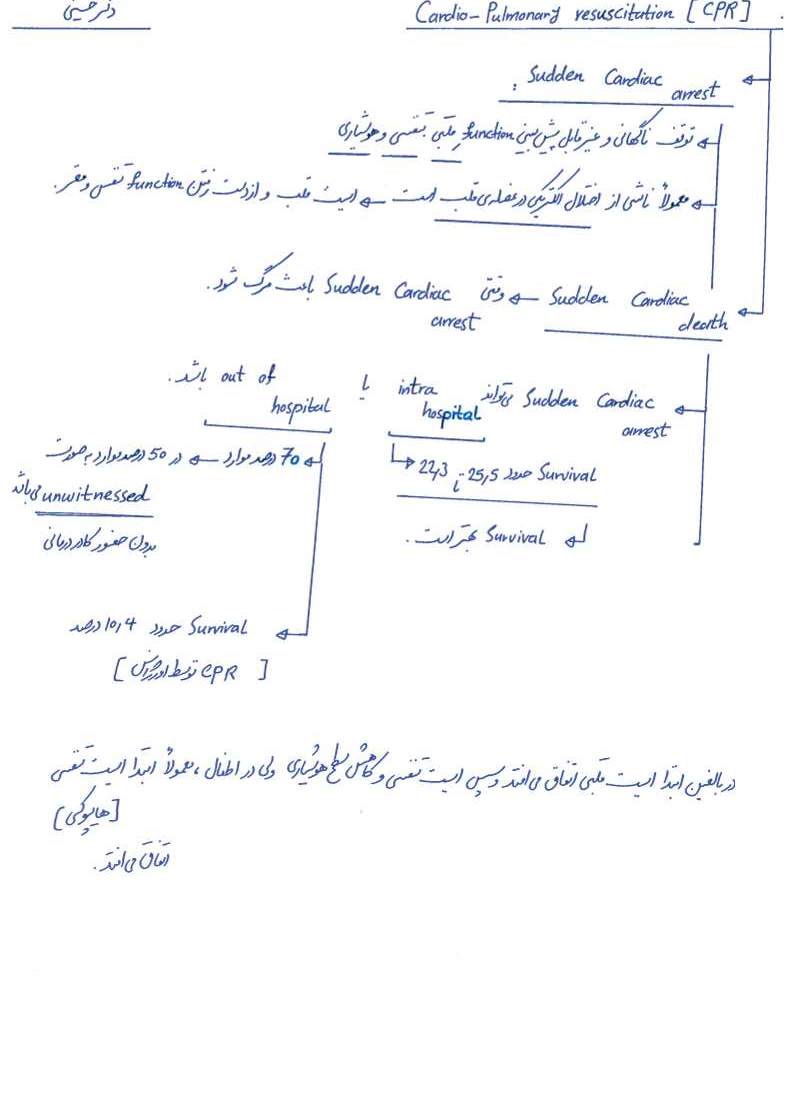 Cardio-Pulmonary resuscitation [CPR]
دکتر حسینی
Sudden Cardiac arrest :
توقف ناگهانی و غیرقابل پیش بینی function قلبی، تنفسی و هوشیاری
معمولاً ناشی از اختلال الکتریکی در عضله‌ی قلب است ← ایست قلب و از دست رفتن function تنفس و مغز.
Sudden Cardiac death ← وقتی Sudden Cardiac arrest باعث مرگ شود.
Sudden Cardiac arrest می‌تواند intra hospital یا out of hospital باشد.
Survival حدود 25,5 تا 22,3
Survival بهتر است.
70 درصد موارد ← در 50 درصد موارد به صورت
unwitnessed می باشد
بدون حضور کادر درمانی
Survival حدود 10,4 درصد
[CPR توسط اورژانس]
در بالغین ابتدا ایست قلبی اتفاق می افتد و سپس ایست تنفسی و کاهش سطح هوشیاری ولی در اطفال، معمولاً ابتدا ایست تنفسی
[هایپوکسی]
اتفاق می افتد.